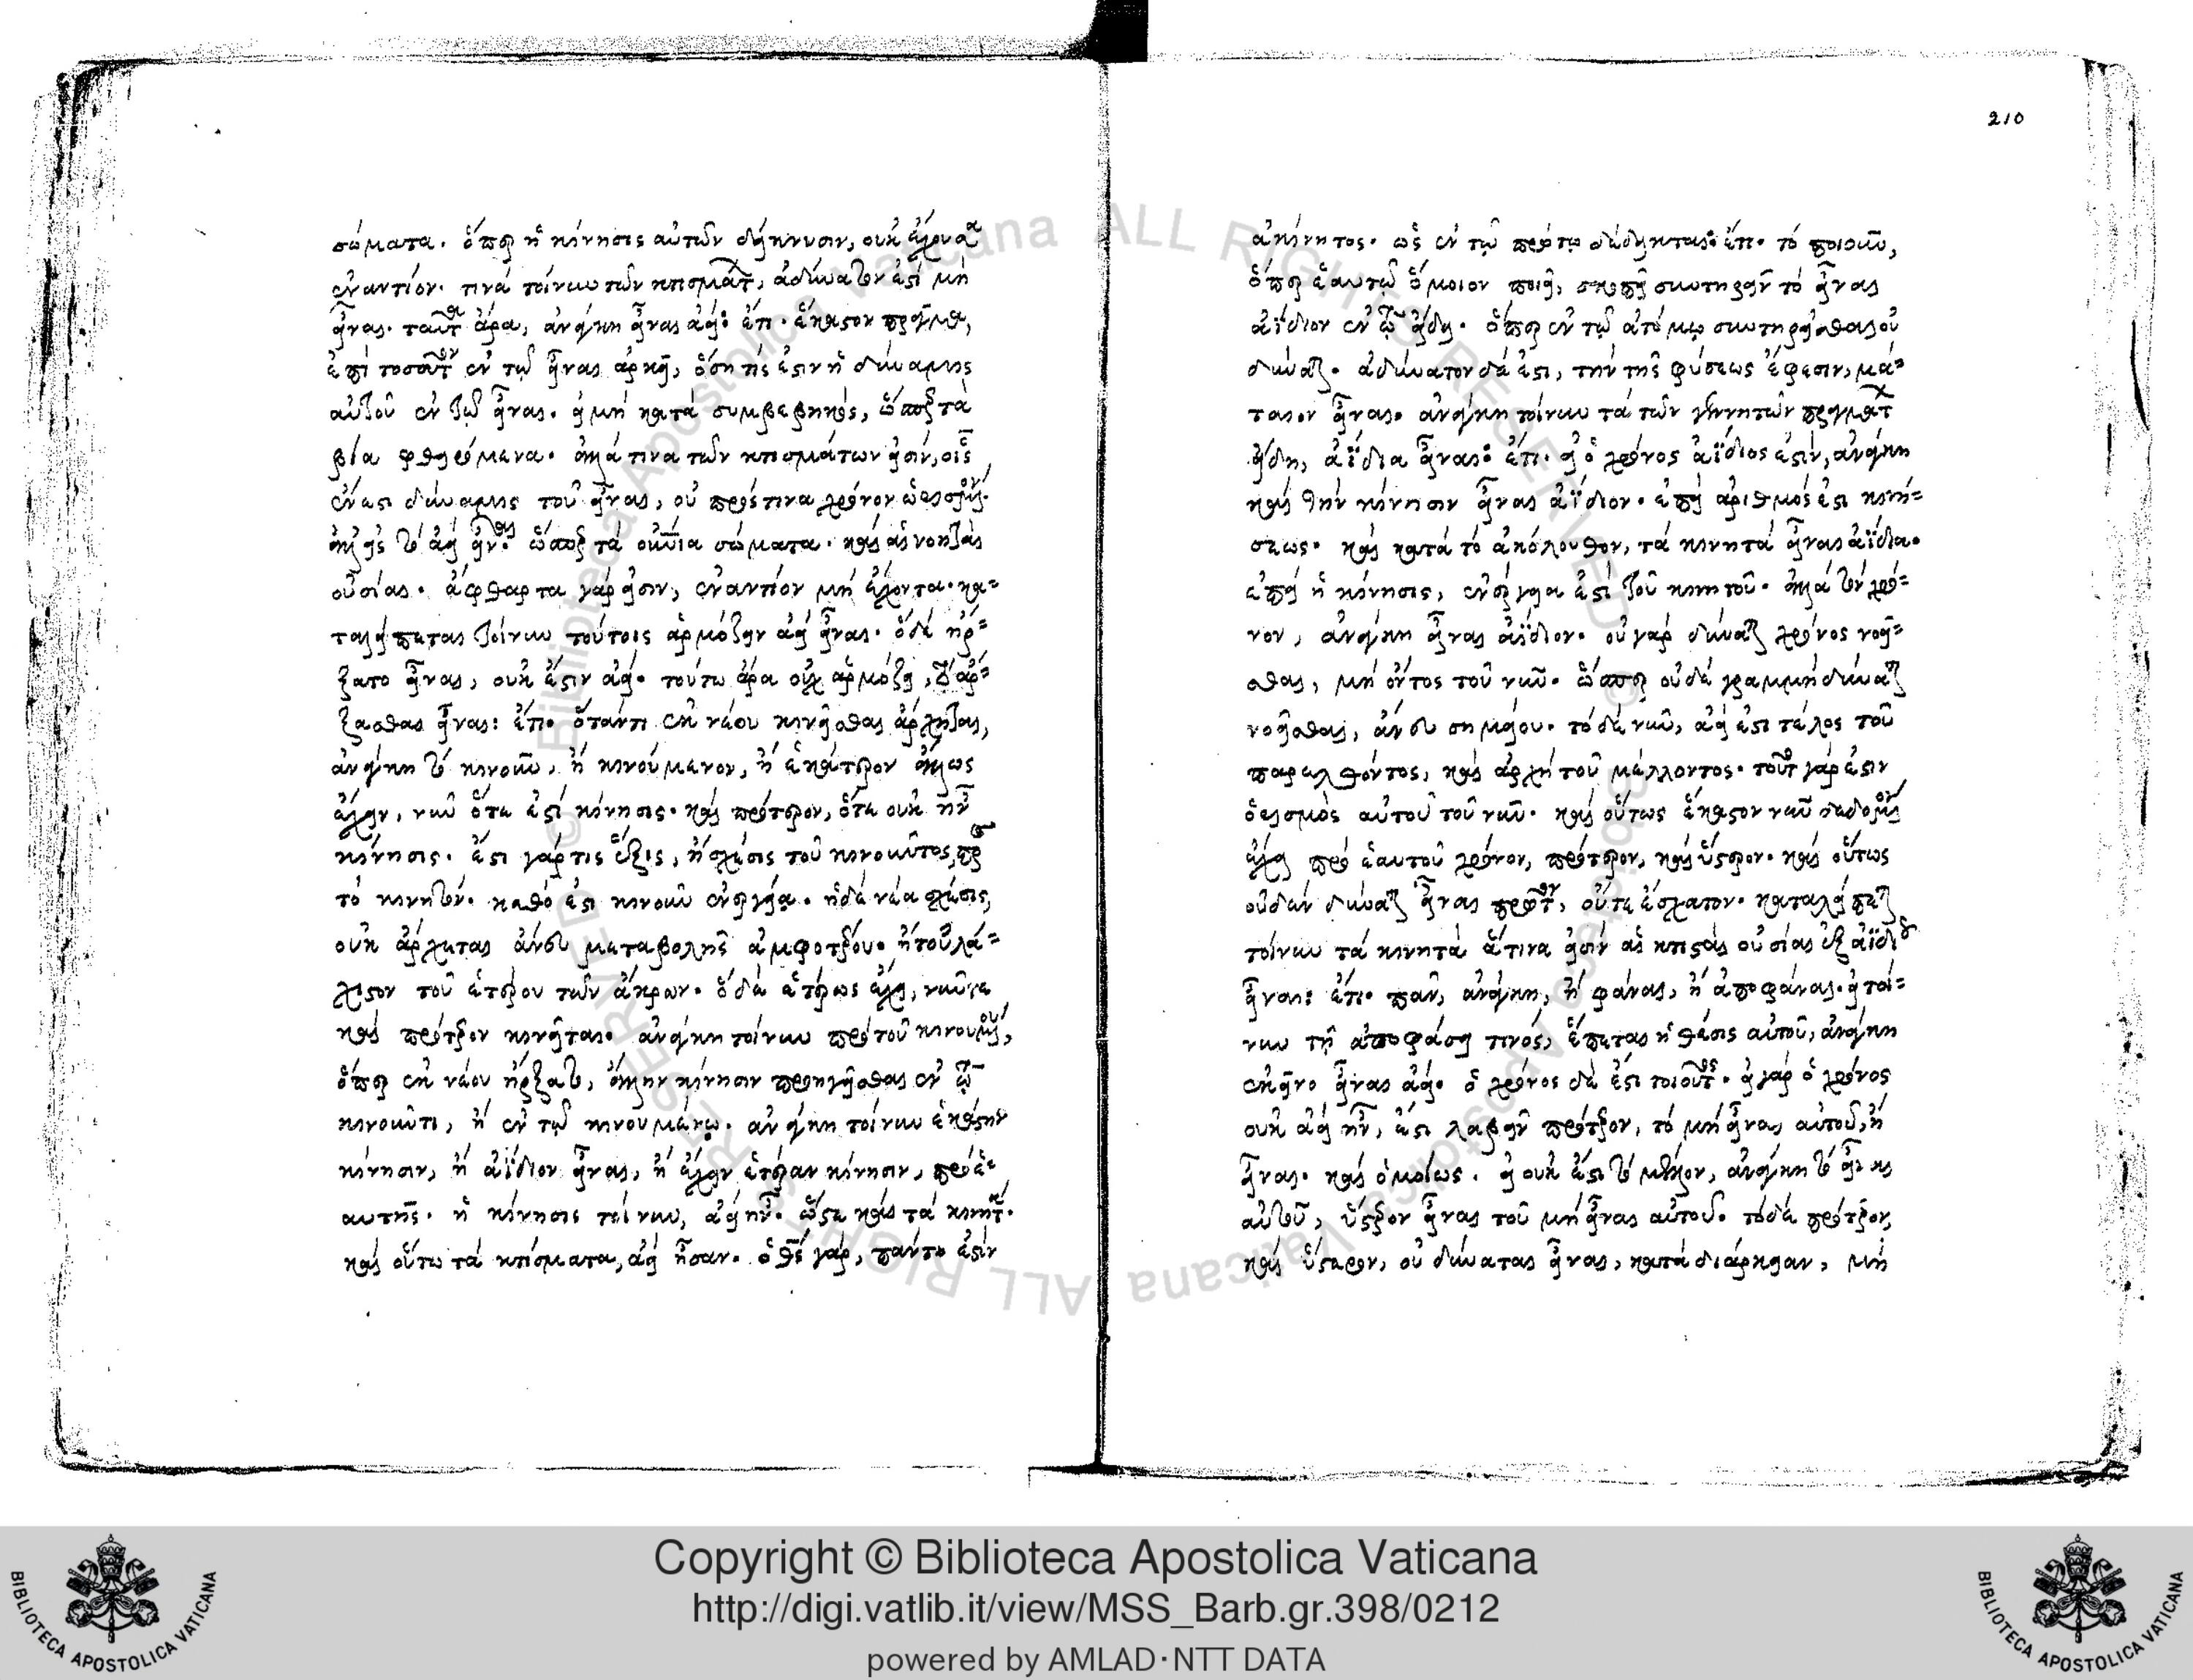 210
σώματα. ὅπερ ἡ κίνησις αὐτῶν δείκνυσιν, οὐκ ἔχουσα
ἐναντίον. τινὰ τοίνυν τῶν κτισμάτ, ἀδύνατόν ἐστι μὴ
εἶναι. ταῦτ ἄρα, ἀνάγκη εἶναι ἀεί: ἔτι. ἕκαστον πρᾶγμα,
ἐπὶ τοσοῦτον ἐν τῷ εἶναι ἀρκεῖ, ὅση τίς ἐστιν ἡ δύναμις
αὐτοῦ ἐν τῷ εἶναι. εἰ μὴ κατὰ συμβεβηκός, ὥσπερ τὰ
βίᾳ φθειρόμενα. ἀλλά τινα τῶν κτισμάτων εἰσίν, οἷς
ἔνεστι δύναμις τοῦ εἶναι, οὐ πρός τινα χρόνον ὡρισμέν.
ἀλλ' εἰς τὸ ἀεὶ εἶναι. ὥσπερ τὰ οὐνια σώματα. καὶ αἱ νοηταὶ
οὐσίαι. ἄφθαρτα γάρ εἰσιν, ἐναντίον μὴ ἔχοντα. κα=
ταλείπεται τοίνυν τούτοις ἁρμόζειν ἀεὶ εἶναι. ὃ δὲ ἤρ=
ξατο εἶναι, οὐκ ἔστιν ἀεί. τούτῳ ἄρα οὐχ ἁρμόζει, τὸ ἄρ=
ξασθαι εἶναι: ἔτι. ὅταν τι ἐκ νέου κινεῖσθαι ἄρχηται,
ἀνάγκη τὸ κινοῦν, ἢ κινούμενον, ἢ ἑκάτερον ἄλλως
ἔχειν, νῦν ὅτε ἐστὶ κίνησις. καὶ πρότερον, ὅτε οὐκ ἦν
κίνησις. ἔστι γάρ τις ἕξις, ἢ σχέσις τοῦ κινοῦντος, πρ
τὸ κινητόν. καθό ἐστι κινοῦν ἐνεργείᾳ. ἡ δὲ νέα σχέσις,
οὐκ ἄρχεται ἄνευ μεταβολῆς ἀμφοτέρου. ἢ τοὐλά=
χιστον τοῦ ἑτέρου τῶν ἄκρων. ὃ δὲ ἑτέρως ἔχει, νῦν τε
καὶ πρότερον κινεῖται. ἀνάγκη τοίνυν πρὸ τοῦ κινουμέν,
ὅπερ ἐκ νέου ἤρξατο, ἄλλην κίνησιν προηγεῖσθαι ἐν τῷ
κινοῦντι, ἢ ἐν τῷ κινουμένῳ. ἀνάγκη τοίνυν ἑκάστην
κίνησιν, ἢ ἀΐδιον εἶναι, ἢ ἔχειν ἑτέραν κίνησιν, πρὸ ἑ=
αυτῆς. ἡ κίνησις τοίνυν, ἀεὶ ἦν. ὥστε καὶ τὰ κινητ.
καὶ οὕτω τὰ κτίσματα, ἀεὶ ἦσαν. ὁ θς γάρ, πάντῃ ἐστίν
ἀκίνητος. ὡς ἐν τῷ πρώτῳ δέδεικται: ἔτι. τὸ ποιοῦν,
ὅπερ ἑαυτῷ ὅμοιον ποιεῖ, σκοπεῖ συντηρεῖν τὸ εἶναι
ἀΐδιον ἐν τῷ εἴδει. ὅπερ ἐν τῷ ἀτόμῳ συντηρεῖσθαι οὐ
δύναται. ἀδύνατον δέ ἐστι, τὴν τῆς φύσεως ἔφεσιν, μά=
ταιον εἶναι. ἀνάγκη τοίνυν τὰ τῶν γεννητῶν πραγμάτ
εἴδη, ἀΐδια εἶναι: ἔτι. εἰ ὁ χρόνος ἀΐδιός ἐστιν, ἀνάγκη
καὶ τὴν κίνησιν εἶναι ἀΐδιον. ἐπεὶ ἀριθμός ἐστι κινή=
σεως. καὶ κατὰ τὸ ἀκόλουθον, τὰ κινητὰ εἶναι ἀΐδια.
ἐπεὶ ἡ κίνησις, ἐνέργεια ἐστὶ τοῦ κινητοῦ. ἀλλὰ τὸν χρό=
νον, ἀνάγκη εἶναι ἀΐδιον. οὐ γὰρ δύναται χρόνος νοεῖ=
σθαι, μὴ ὄντος τοῦ νῦν. ὥσπερ οὐδὲ γραμμὴ δύναται
νοεῖσθαι, ἄνευ σημείου. τὸ δὲ νῦν, ἀεί ἐστι τέλος τοῦ
παρελθόντος, καὶ ἀρχὴ τοῦ μέλλοντος. τοῦτο γάρ ἐστιν
ὁρισμὸς αὐτοῦ τοῦ νῦν. καὶ οὕτως ἕκαστον νῦν δεδομέν
ἔχει πρὸ ἑαυτοῦ χρόνον, πρότερον, καὶ ὕστερον. καὶ οὕτως
οὐδὲν δύναται εἶναι πρῶτον, οὔτε ἔσχατον. καταλείπεται
τοίνυν τὰ κινητὰ ἅτινα εἰσὶν αἱ κτισταὶ οὐσίαι ἐξ ἀϊδίου
εἶναι: ἔτι. πᾶν, ἀνάγκη, ἢ φάναι, ἢ ἀποφάναι. εἰ τοί=
νυν τῇ ἀποφάσει τινός, ἕπεται ἡ θέσις αὐτοῦ, ἀνάγκη
ἐκεῖνο εἶναι ἀεί. ὁ χρόνος δέ ἐστι τοιοῦτος. εἰ γὰρ ὁ χρόνος
οὐκ ἀεὶ ἦν, ἔστι λαβεῖν πρότερον, τὸ μὴ εἶναι αὐτοῦ, ἢ
εἶναι. καὶ ὁμοίως. εἰ οὐκ ἔστι τὸ μέλλον, ἀνάγκη τὸ εἶναι
αὐτοῦ, ὕστερον εἶναι τοῦ μὴ εἶναι αὐτοῦ. τὸ δὲ πρότερον,
καὶ ὕστερον, οὐ δύναται εἶναι, κατὰ διάρκειαν, μὴ
Copyright © Biblioteca Apostolica Vaticana
http://digi.vatlib.it/view/MSS_Barb.gr.398/0212
powered by AMLAD·NTT DATA
BIBLIOTECA APOSTOLICA VATICANA
BIBLIOTECA APOSTOLICA VATICANA